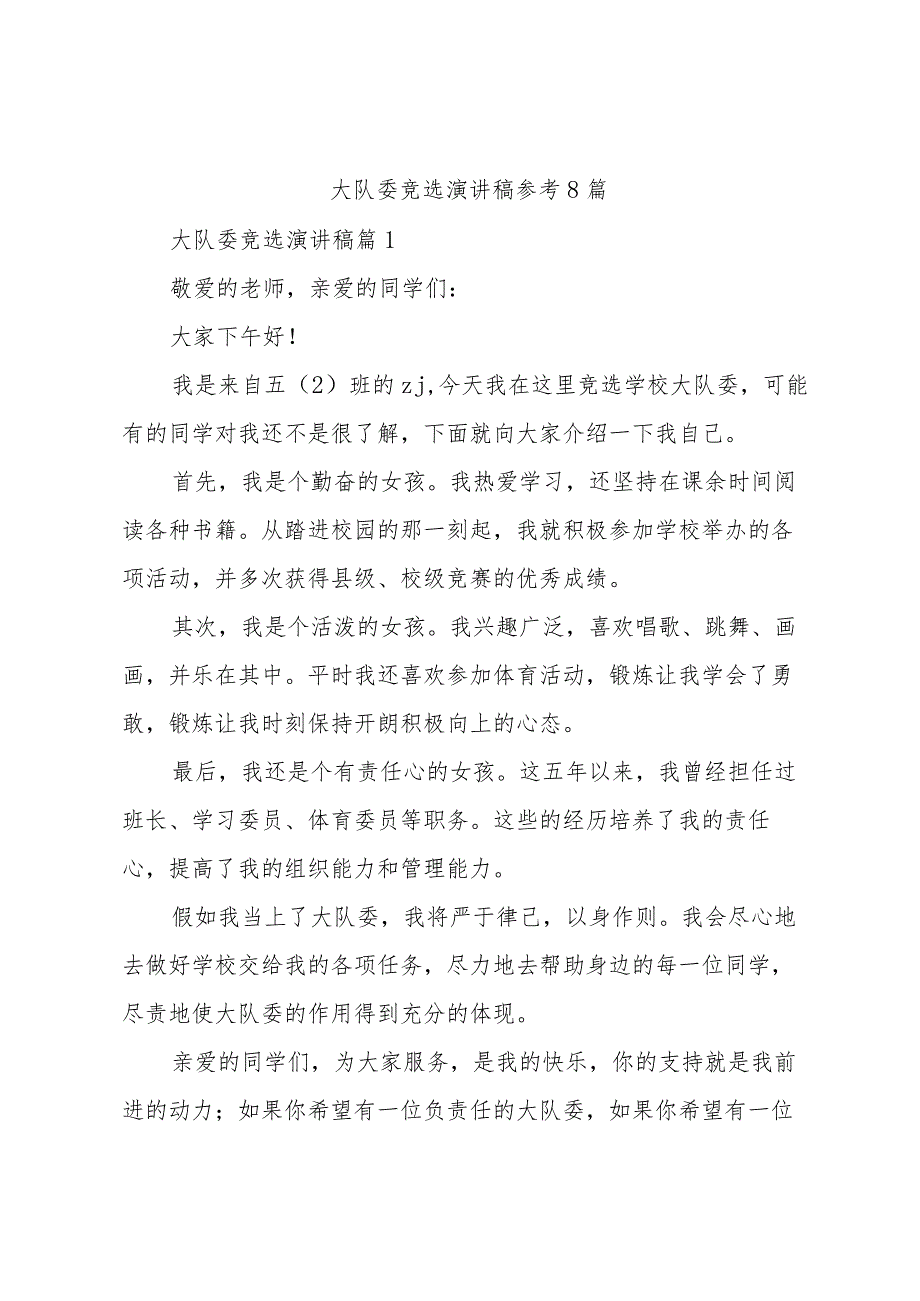 大队委竞选演讲稿参考8篇
大队委竞选演讲稿篇1
敬爱的老师，亲爱的同学们：
大家下午好！
我是来自五（2）班的zj,今天我在这里竞选学校大队委，可能
有的同学对我还不是很了解，下面就向大家介绍一下我自己。
首先，我是个勤奋的女孩。我热爱学习，还坚持在课余时间阅
读各种书籍。从踏进校园的那一刻起，我就积极参加学校举办的各
项活动，并多次获得县级、校级竞赛的优秀成绩。
其次，我是个活泼的女孩。我兴趣广泛，喜欢唱歌、跳舞、画
画，并乐在其中。平时我还喜欢参加体育活动，锻炼让我学会了勇
敢，锻炼让我时刻保持开朗积极向上的心态。
最后，我还是个有责任心的女孩。这五年以来，我曾经担任过
班长、学习委员、体育委员等职务。这些的经历培养了我的责任
心，提高了我的组织能力和管理能力。
假如我当上了大队委，我将严于律己，以身作则。我会尽心地
去做好学校交给我的各项任务，尽力地去帮助身边的每一位同学，
尽责地使大队委的作用得到充分的体现。
亲爱的同学们，为大家服务，是我的快乐，你的支持就是我前
进的动力；如果你希望有一位负责任的大队委，如果你希望有一位